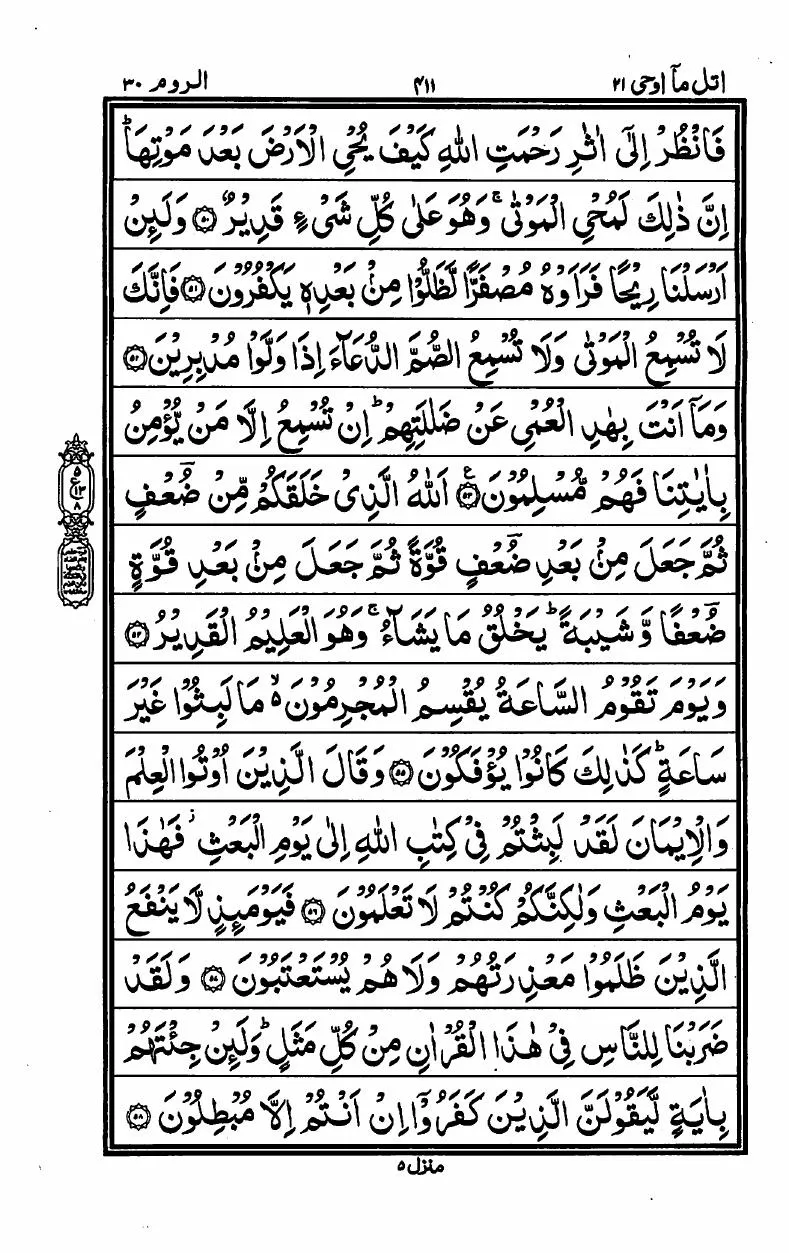 اتل مآ اوحی ۲۱ ۴۱۱ الروم ۳۰
فَانْظُرْ اِلٰۤى اٰثٰرِ رَحْمَتِ اللّٰهِ كَیْفَ یُحْیِ الْاَرْضَ بَعْدَ مَوْتِهَا ؕ
اِنَّ ذٰلِكَ لَمُحْیِ الْمَوْتٰى ۚ وَهُوَ عَلٰى كُلِّ شَیْءٍ قَدِیْرٌ ۝۵۰ وَلَىِٕنْ
اَرْسَلْنَا رِیْحًا فَرَاَوْهُ مُصْفَرًّا لَّظَلُّوْا مِنْۢ بَعْدِهٖ یَكْفُرُوْنَ ۝۵۱ فَاِنَّكَ
لَا تُسْمِعُ الْمَوْتٰى وَلَا تُسْمِعُ الصُّمَّ الدُّعَآءَ اِذَا وَلَّوْا مُدْبِرِیْنَ ۝۵۲
وَمَاۤ اَنْتَ بِهٰدِ الْعُمْیِ عَنْ ضَلٰلَتِهِمْ ؕ اِنْ تُسْمِعُ اِلَّا مَنْ یُّؤْمِنُ
بِاٰیٰتِنَا فَهُمْ مُّسْلِمُوْنَ ۝۵۳ اَللّٰهُ الَّذِیْ خَلَقَكُمْ مِّنْ ضُؔعْفٍ
ثُمَّ جَعَلَ مِنْۢ بَعْدِ ضُؔعْفٍ قُوَّةً ثُمَّ جَعَلَ مِنْۢ بَعْدِ قُوَّةٍ
ضُؔعْفًا وَّشَیْبَةً ؕ یَخْلُقُ مَا یَشَآءُ ۚ وَهُوَ الْعَلِیْمُ الْقَدِیْرُ ۝۵۴
وَیَوْمَ تَقُوْمُ السَّاعَةُ یُقْسِمُ الْمُجْرِمُوْنَ ۙ۬ مَا لَبِثُوْا غَیْرَ
سَاعَةٍ ؕ كَذٰلِكَ كَانُوْا یُؤْفَكُوْنَ ۝۵۵ وَقَالَ الَّذِیْنَ اُوْتُوا الْعِلْمَ
وَالْاِیْمَانَ لَقَدْ لَبِثْتُمْ فِیْ كِتٰبِ اللّٰهِ اِلٰى یَوْمِ الْبَعْثِ ؗ فَهٰذَا
یَوْمُ الْبَعْثِ وَلٰكِنَّكُمْ كُنْتُمْ لَا تَعْلَمُوْنَ ۝۵۶ فَیَوْمَىِٕذٍ لَّا یَنْفَعُ
الَّذِیْنَ ظَلَمُوْا مَعْذِرَتُهُمْ وَلَا هُمْ یُسْتَعْتَبُوْنَ ۝۵۷ وَلَقَدْ
ضَرَبْنَا لِلنَّاسِ فِیْ هٰذَا الْقُرْاٰنِ مِنْ كُلِّ مَثَلٍ ؕ وَلَىِٕنْ جِئْتَهُمْ
بِاٰیَةٍ لَّیَقُوْلَنَّ الَّذِیْنَ كَفَرُوْۤا اِنْ اَنْتُمْ اِلَّا مُبْطِلُوْنَ ۝۵۸
۵
ع۱۳
۸
منزل ۵